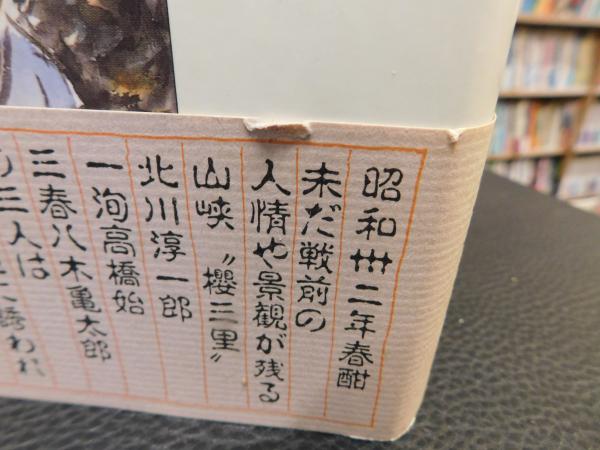 昭和卅二年春酣
未だ戦前の
人情や景観が残る
山峡〝櫻三里〟
北川淳一郎
一洵高橋始
三春八木亀太郎
り三人は
に誘われ